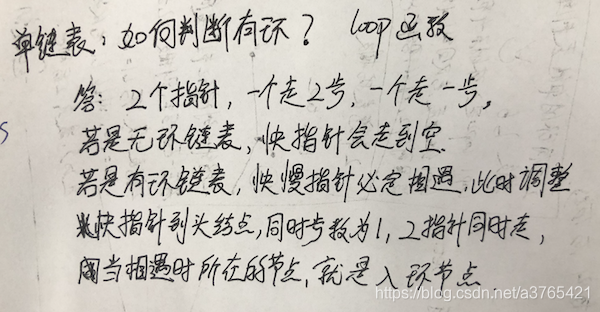 单链表：如何判断有环？ loop函数
答：2个指针，一个走2号，一个走一步，
若是无环链表，快指针会走到空.
若是有环链表，快慢指针必定相遇，此时调整
快指针到头结点，同时步数为1，2指针同时走，
当相遇时所在的节点，就是入环节点.
https://blog.csdn.net/a3765421